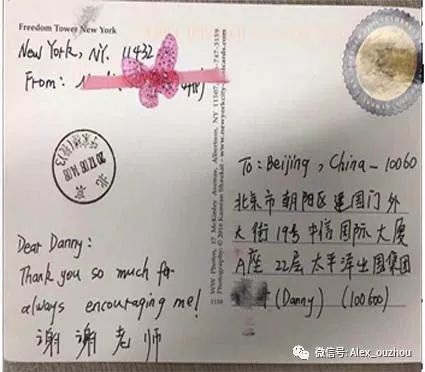 Freedom Tower New York
New York, NY. 11432
From:
Dear Danny:
Thank you so much for
always encouraging me!
谢谢老师
WW Photos, 17 McKinley Avenue, Albertson, NY 11507
747-3159
Photography: © 2016 Kamran Shaukat
To: Beijing, China - 10060
北京市朝阳区建国门外
大街19号中信国际大厦
A座22层太平洋出国集团
(Danny) (100600)
微信号: Alex_ouzhou